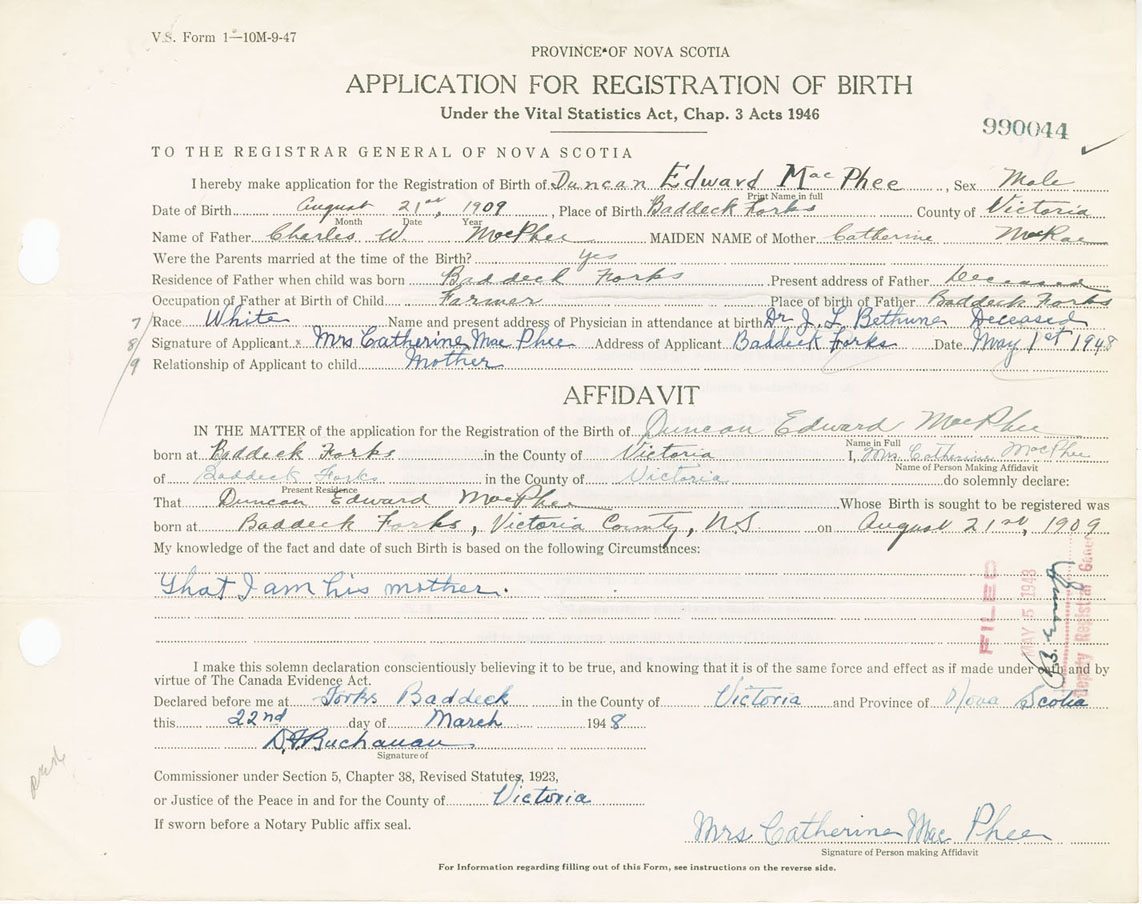 V.S. Form 1—10M-9-47
PROVINCE OF NOVA SCOTIA
APPLICATION FOR REGISTRATION OF BIRTH
Under the Vital Statistics Act, Chap. 3 Acts 1946
990044
TO THE REGISTRAR GENERAL OF NOVA SCOTIA
I hereby make application for the Registration of Birth of Duncan Edward MacPhee, Sex Male
Print Name in full
Date of Birth August 21st, 1909, Place of Birth Baddeck Forks County of Victoria
Month Date Year
Name of Father Charles W. MacPhee MAIDEN NAME of Mother Catherine McRae
Were the Parents married at the time of the Birth? yes
Residence of Father when child was born Baddeck Forks Present address of Father Deceased
Occupation of Father at Birth of Child Farmer Place of birth of Father Baddeck Forks
7/ Race White Name and present address of Physician in attendance at birth Dr J. L Bethune Deceased
8/ Signature of Applicant Mrs Catherine Mac Phee Address of Applicant Baddeck Forks Date May 1st 1948
/9 Relationship of Applicant to child Mother
AFFIDAVIT
IN THE MATTER of the application for the Registration of the Birth of Duncan Edward MacPhee
Name in Full
born at Baddeck Forks in the County of Victoria I, Mrs Catherine MacPhee
Name of Person Making Affidavit
of Baddeck Forks in the County of Victoria do solemnly declare:
Present Residence
That Duncan Edward MacPhee Whose Birth is sought to be registered was
born at Baddeck Forks, Victoria County, N.S. on August 21st, 1909
My knowledge of the fact and date of such Birth is based on the following Circumstances:
That I am his mother.
FILED
MAY 5 1948
Deputy Registrar General
I make this solemn declaration conscientiously believing it to be true, and knowing that it is of the same force and effect as if made under oath and by
virtue of The Canada Evidence Act.
Declared before me at Forks Baddeck in the County of Victoria and Province of Nova Scotia
this 22nd day of March 1948
D.F. Buchanan
Signature of
Commissioner under Section 5, Chapter 38, Revised Statutes, 1923,
or Justice of the Peace in and for the County of Victoria
If sworn before a Notary Public affix seal.
Mrs Catherine Mac Phee
Signature of Person making Affidavit
For Information regarding filling out of this Form, see instructions on the reverse side.